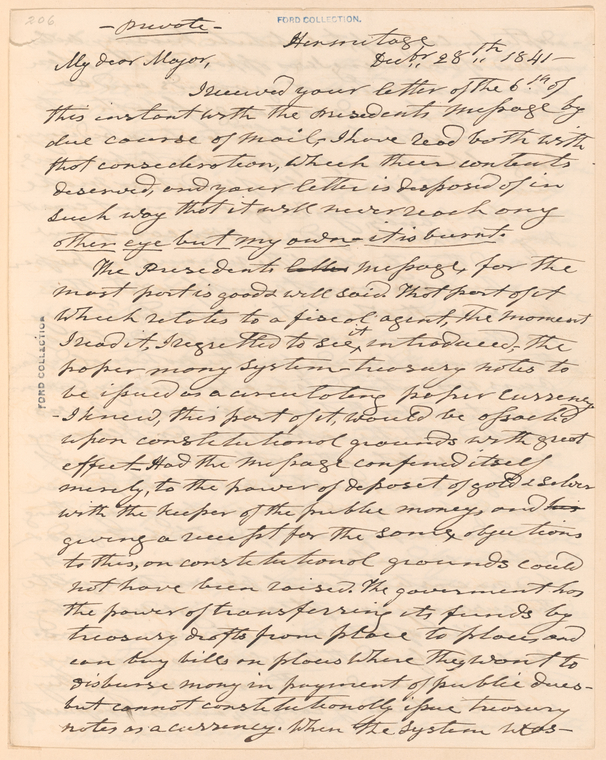 206
- Private -
FORD COLLECTION.
Hermitage
Decbr 28th 1841-
My dear Major,
I received your letter of the 6th of
this instant with the Presidents message by
due course of mail, I have read both with
that consideration, which their contents
deserved, and your letter is disposed of in
such way that it will never reach any
other eye but my own - it is burnt.
The Presidents letter message, for the
most part is good & well said. That part of it
which relates to a fiscal agent, the moment
I read it, I regretted to see it introduced, the
paper mony system - treasury notes to
be issued as a circulating paper currency
- I knew, this part of it, would be assailed
upon constitutional grounds with great
effect - Had the message confined itself
merely, to the power of deposit of gold & silver
with the keeper of the public moneys and
giving a receipt for the same objections
to this, on constitutional grounds could
not have been raised. The goverment has
the power of transferring its funds by
treasury drafts from place to place, and
can buy bills on places where they want to
disburse mony in payment of public dues-
but cannot constitutionally issue treasury
notes as a currency. When the system was-
FORD COLLECTION